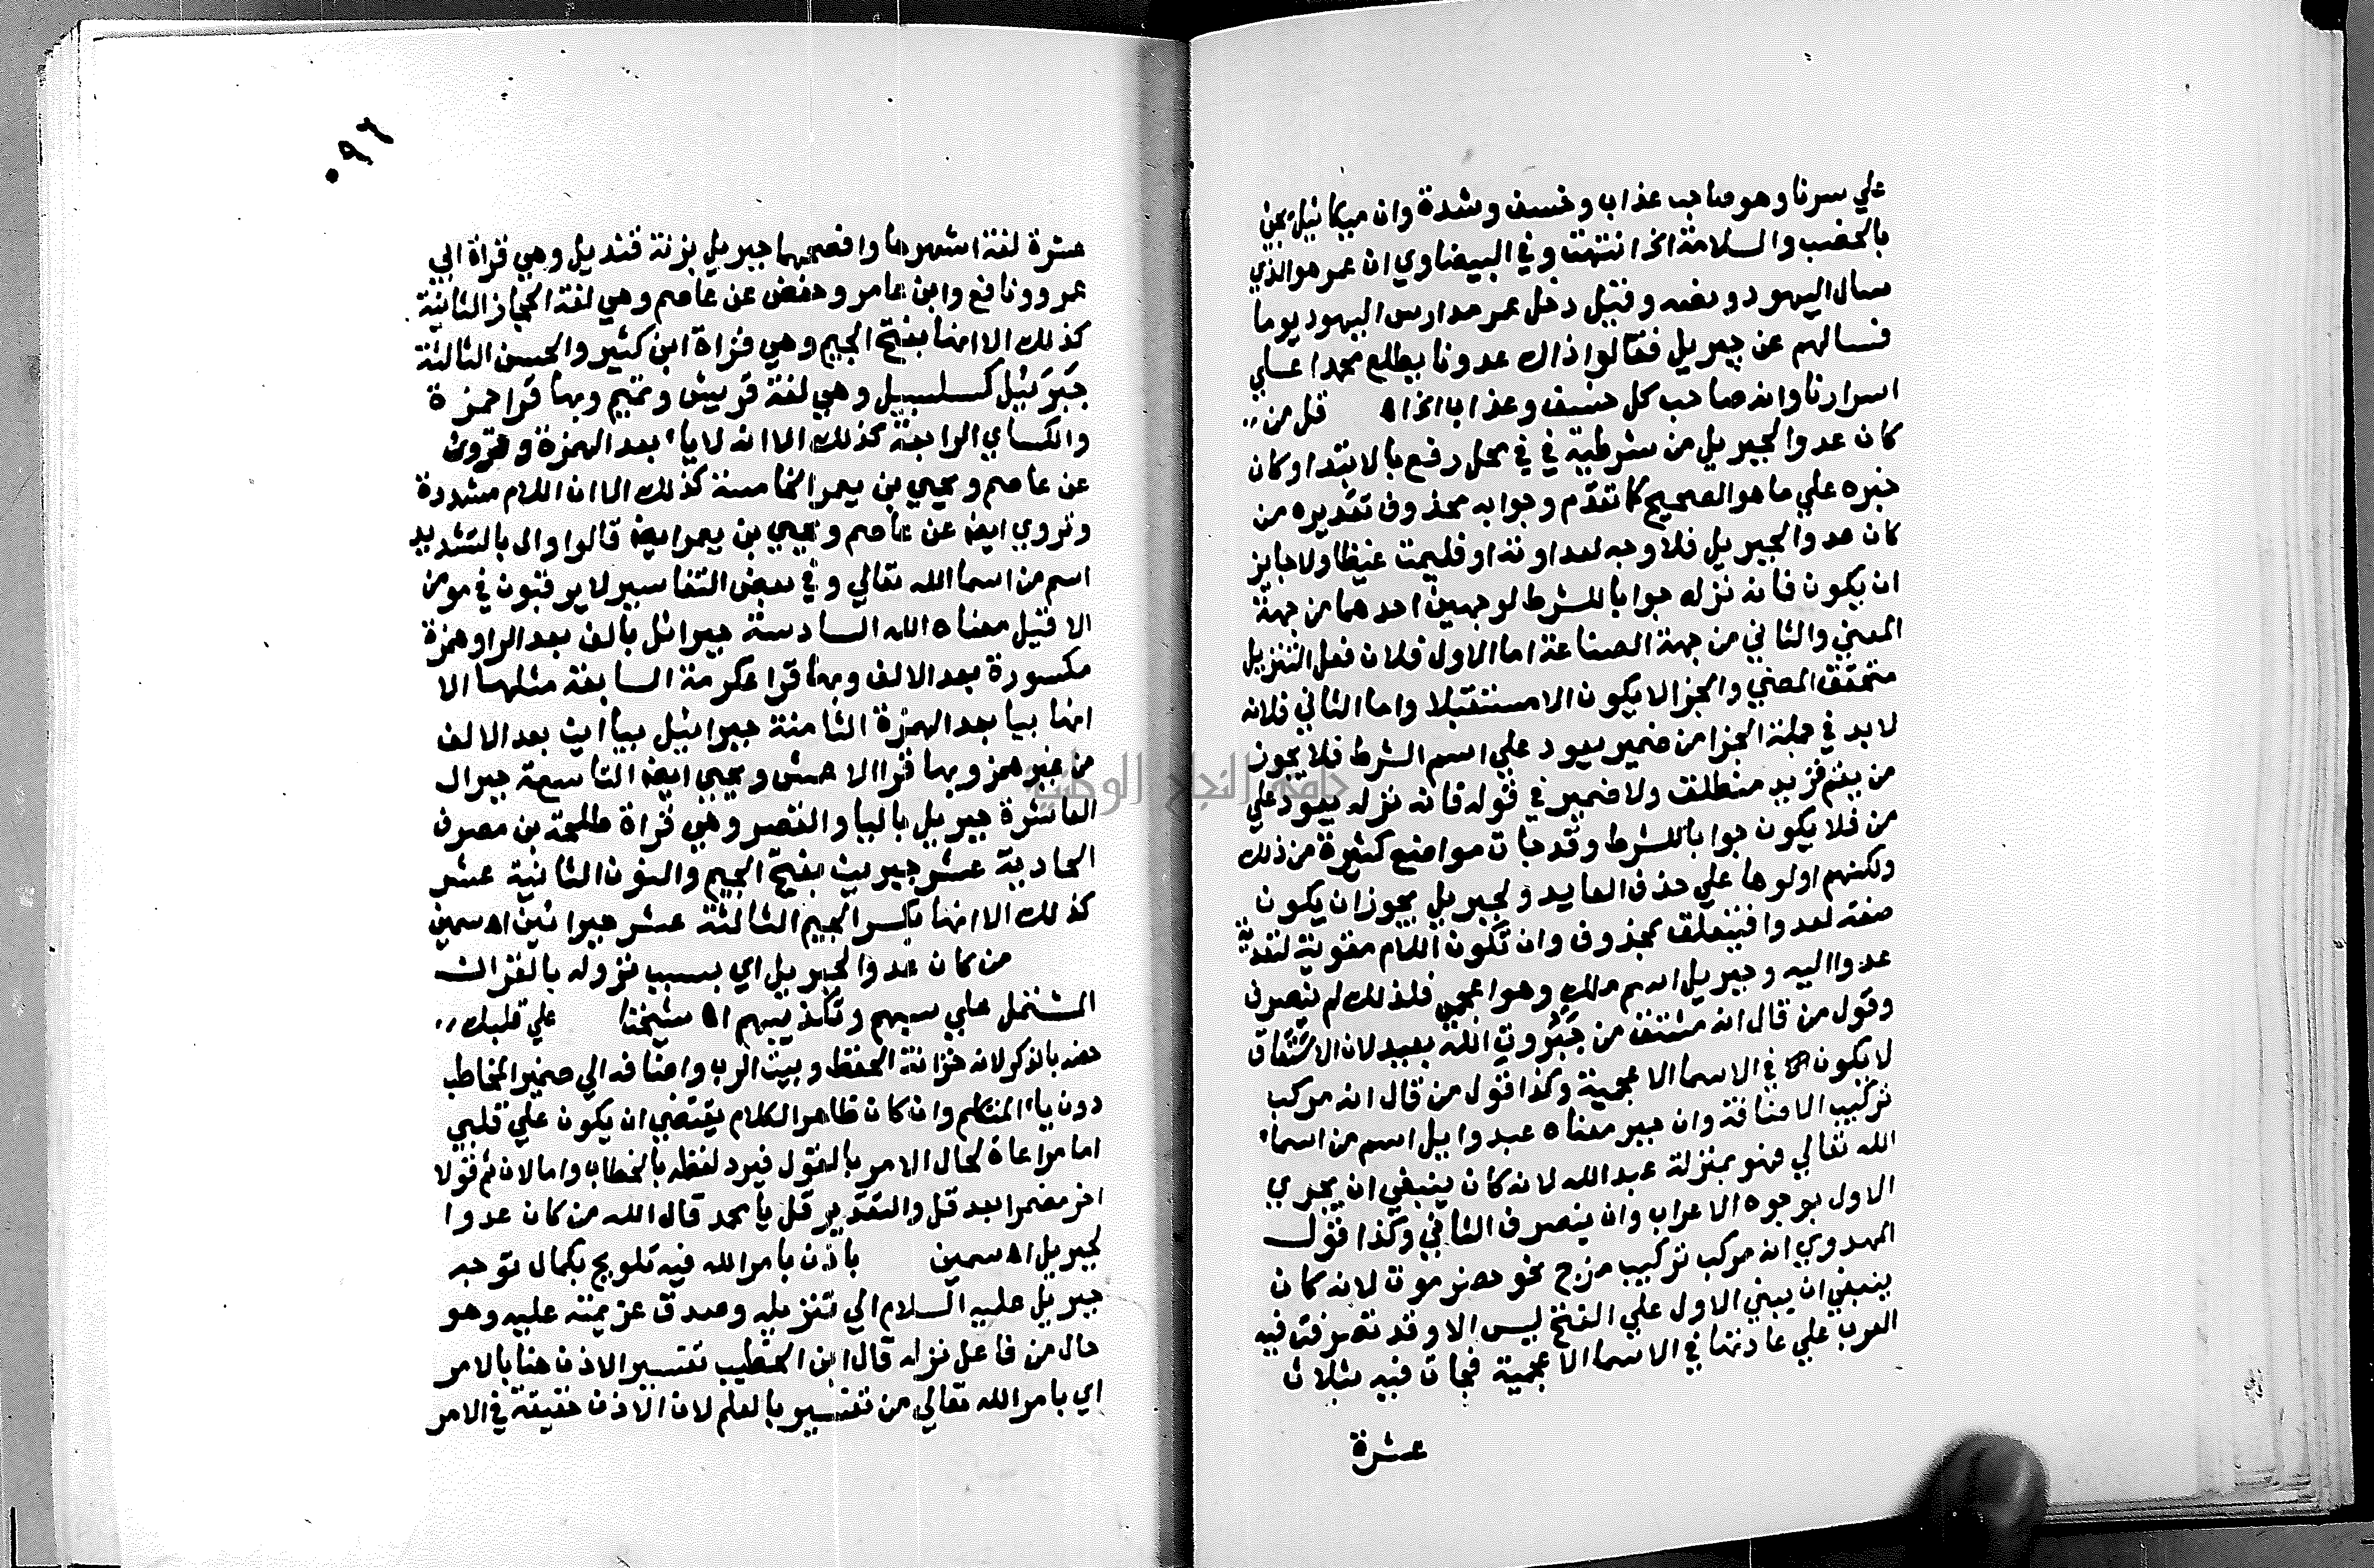 علي سرنا وهو صاحب عذاب وخسف وشدة وان ميكائيل يجئ
بالخصب والسلامة الخ انتهت وفي البيضاوي ان عمر هو الذي
سال اليهود ونصه وقيل دخل عمر مدارس اليهود يوما
فسالهم عن جبريل فقالوا ذاك عدونا يطلع محمدا علي
اسرارنا وانه صاحب كل خسف وعذاب الخ اه قل من ،،
كان عدوا لجبريل من شرطية في في محل رفع بالابتدا وكان
خبره علي ما هو الصحيح كما تقدم وجوابه محذوف تقديره من
كان عدوا لجبريل فلا وجه لعداوته او فليمت غيظا ولا جايز
ان يكون فانه نزله جوابا للشرط لوجهين احدهما من جهة
المعني والثاني من جهة الصناعة اما الاول فلان فعل التنزيل
متحقق المضي والجزا لا يكون الا مستقبلا واما الثاني فلانه
لا بد في جملة الجزا من ضمير يعود علي اسم الشرط فلا يجوز
من يقم فزيد منطلق ولا ضمير في قوله فانه نزله يعود علي
من فلا يكون جوابا للشرط وقد جات مواضع كثيرة من ذلك
ولكنهم اولوها علي حذف العايد ولجبريل يجوز ان يكون
صفة لعدوا فيتعلق بمحذوف وان تكون اللام مقوية لتعدية
عدوا اليه وجبريل اسم ملك وهو اعجمي فلذلك لم ينصرف
وقول من قال انه مشتق من جَبَرُوتِ الله بعيد لان الاشتقاق
لا يكون في الاسما الاعجمية وكذا قول من قال انه مركب
تركيب الاضافة وان جبر معناه عبد وايل اسم من اسماء
الله تعالي فهو بمنزلة عبد الله لانه كان ينبغي ان يجري
الاول بوجوه الاعراب وان ينصرف الثاني وكذا قول
المهدوي انه مركب تركيب مزج نحو حضرموت لانه كان
ينبغي ان يبني الاول علي الفتح ليس الا وقد تصرفت فيه
العرب علي عادتها في الاسما الاعجمية فجات فيه بثلاث
عشرة
٠٩٦
عشرة لغة اشهرها وافصحها جبريل بزنة قنديل وهي قراة ابي
عمرو ونافع وابن عامر وحفص عن عاصم وهي لغة الحجاز الثانية
كذلك الا انها بفتح الجيم وهي قراة ابن كثير والحسن الثالثة
جَبْرَئيل كسلسبيل وهي لغة قريش وتميم وبها قرا حمزة
والكساي الرابعة كذلك الا انه لا ياء بعد الهمزة وتروي
عن عاصم ويحيي بن يعمر الخامسة كذلك الا ان اللام مشددة
وتروي ايضا عن عاصم ويحيي بن يعمر ايضا قالوا وال بالتشديد
اسم من اسما الله تعالي وفي بعض التفاسير لا يرقبون في مومن
الا قيل معناه الله السادسة جبرائل بالف بعد الرا وهمزة
مكسورة بعد الالف وبها قرا عكرمة السابعة مثلها الا
انها بيا بعد الهمزة الثامنة جبراييل بياأين بعد الالف
من غير همز وبها قرا الاعمش ويحيي ايضا التاسعة جبرال
العاشرة جبريل باليا والقصر وهي قراة طلحة بن مصرف
الحادية عشر جبرين بفتح الجيم والنون الثانية عشر
كذلك الا انها بكسر الجيم الثالثة عشر جبرائين اه سمين
من كان عدوا لجبريل اي بسبب نزوله بالقران
المشتمل علي سبهم وتكذيبهم اه شيخنا علي قلبك ،،
خصه بالذكر لانه خزانة الحفظ وبيت الرب واضافه الي ضمير المخاطب
دون ياء المتكلم وان كان ظاهر الكلام يقتضي ان يكون علي قلبي
اما مراعاة لحال الامر بالقول فيرد لفظه بالخطاب واما لان ثم قولا
اخر مضمرا بعد قل والتقدير قل يا محمد قال الله من كان عدوا
لجبريل اه سمين باذن بامر الله فيه تلويح بكمال توجه
جبريل عليه السلام الي تنزيله وصدق عزيمته عليه وهو
حال من فاعل نزله قال ابن الخطيب تفسير الاذن هنا بالامر
اي بامر الله تعالي من تفسيره بالعلم لان الاذن حقيقة في الامر
جامعة النجاح الوطنية